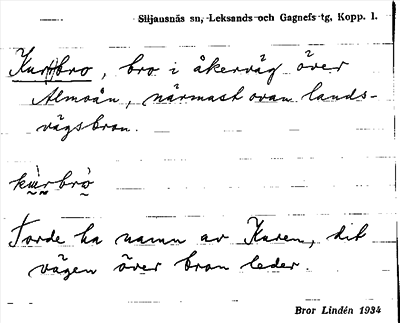 Siljansnäs sn, Leksands och Gagnefs tg, Kopp. l.
Kurbro, bro i åkerväg över
Almoån, närmast ovan lands-
vägsbron.
kùrbrò
Torde ha namn av Kuren, dit
vägen över bron leder.
Bror Lindén 1934